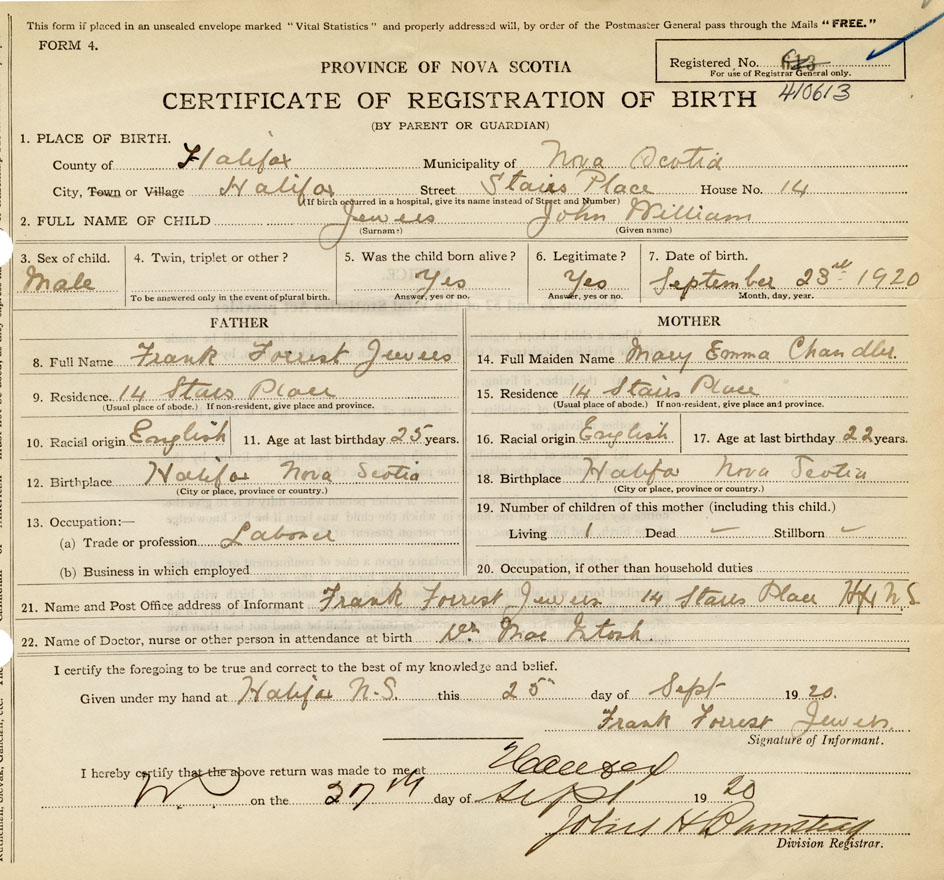 This form if placed in an unsealed envelope marked "Vital Statistics" and properly addressed will, by order of the Postmaster General pass through the Mails "FREE."
FORM 4.
PROVINCE OF NOVA SCOTIA
Registered No. 613
For use of Registrar General only.
410613
CERTIFICATE OF REGISTRATION OF BIRTH
(BY PARENT OR GUARDIAN)
1. PLACE OF BIRTH.
County of Halifax Municipality of Nova Scotia
City, Town or Village Halifax Street Stairs Place House No. 14
(If birth occurred in a hospital, give its name instead of Street and Number)
2. FULL NAME OF CHILD Jewers John William
(Surname) (Given name)
3. Sex of child. 4. Twin, triplet or other? 5. Was the child born alive? 6. Legitimate? 7. Date of birth.
Male Yes Yes September 23rd 1920
To be answered only in the event of plural birth. Answer, yes or no. Answer, yes or no. Month, day, year.
FATHER
8. Full Name Frank Forrest Jewers
9. Residence. 14 Stairs Place
(Usual place of abode.) If non-resident, give place and province.
10. Racial origin English 11. Age at last birthday 25 years.
12. Birthplace Halifax Nova Scotia
(City or place, province or country.)
13. Occupation:—
(a) Trade or profession Laborer
(b) Business in which employed
MOTHER
14. Full Maiden Name Mary Emma Chandler
15. Residence 14 Stairs Place
(Usual place of abode.) If non-resident, give place and province.
16. Racial origin English 17. Age at last birthday 22 years.
18. Birthplace Halifax Nova Scotia
(City or place, province or country.)
19. Number of children of this mother (including this child.)
Living 1 Dead – Stillborn –
20. Occupation, if other than household duties
21. Name and Post Office address of Informant Frank Forrest Jewers 14 Stairs Place Hfx N.S.
22. Name of Doctor, nurse or other person in attendance at birth Dr. Mac Intosh.
I certify the foregoing to be true and correct to the best of my knowledge and belief.
Given under my hand at Halifax N.S. this 25th day of Sept 1920.
Frank Forrest Jewers
Signature of Informant.
I hereby certify that the above return was made to me at Halifax
on the 27th day of Sept 1920
John H Barnstead
Division Registrar.